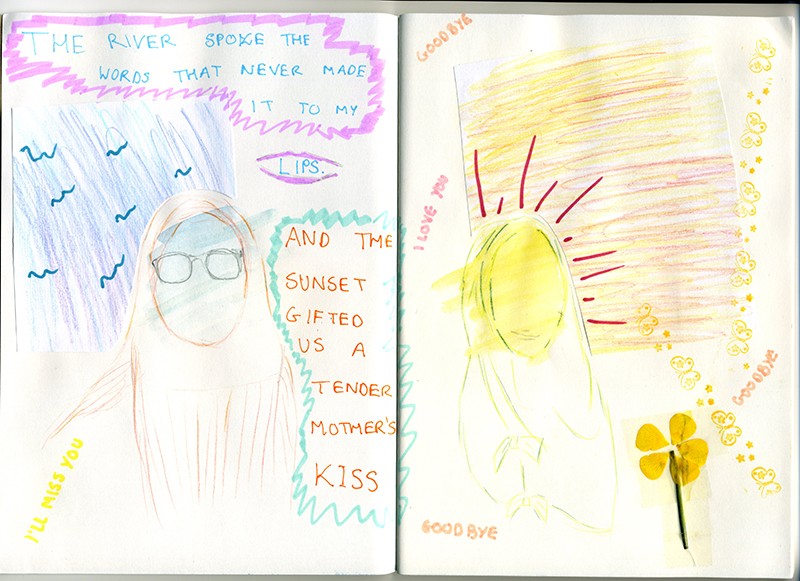 THE RIVER SPOKE THE
WORDS THAT NEVER MADE
IT TO MY
LIPS.
AND THE
SUNSET
GIFTED
US A
TENDER
MOTHER'S
KISS
I'LL MISS YOU
GOODBYE
I LOVE YOU
GOODBYE
GOODBYE